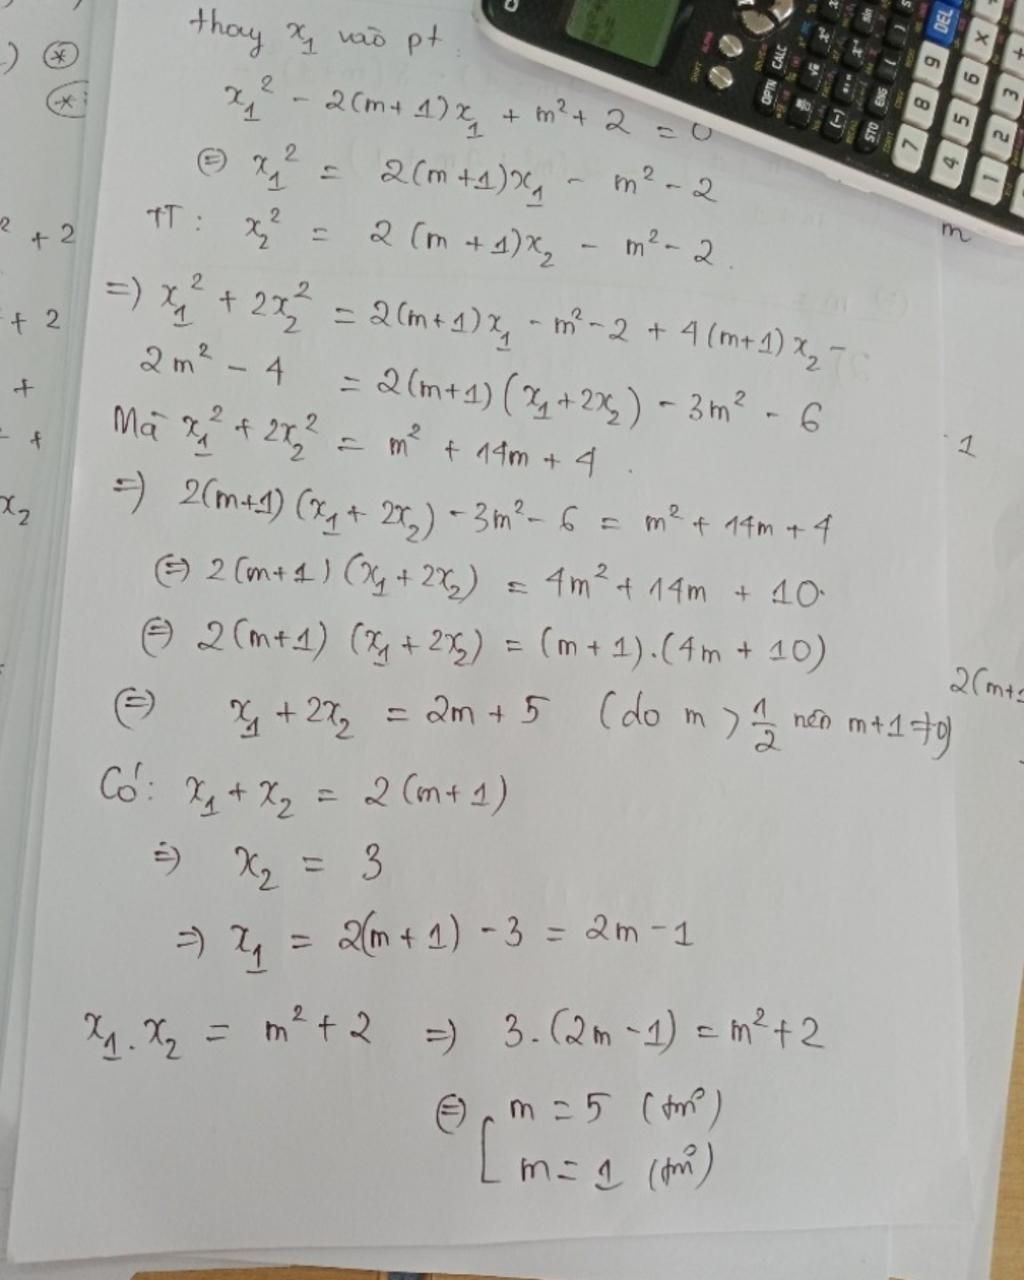 thay x₁ vào pt :
x₁² - 2(m+1)x₁ + m² + 2 = 0
⇔ x₁² = 2(m+1)x₁ - m² - 2
TT : x₂² = 2(m+1)x₂ - m² - 2.
=) x₁² + 2x₂² = 2(m+1)x₁ - m² - 2 + 4(m+1)x₂ -
2m² - 4 = 2(m+1)(x₁ + 2x₂) - 3m² - 6
Mà x₁² + 2x₂² = m² + 14m + 4 .
=) 2(m+1)(x₁ + 2x₂) - 3m² - 6 = m² + 14m + 4
⇔ 2(m+1)(x₁ + 2x₂) = 4m² + 14m + 10.
⇔ 2(m+1)(x₁ + 2x₂) = (m+1).(4m + 10)
⇔ x₁ + 2x₂ = 2m + 5 (do m > 1/2 nên m+1 ≠ 0)
Có: x₁ + x₂ = 2(m+1)
=) x₂ = 3
=) x₁ = 2(m+1) - 3 = 2m - 1
x₁.x₂ = m² + 2 =) 3.(2m - 1) = m² + 2
⇔ [ m = 5 (tm)
m = 1 (tm)
) (*)
(*)
² + 2
+ 2
+
+
x₂
m
1
2(m+1
OPTN CALC
STO ENG ( )
(-)
7 8 9 DEL
4 5 6 ×
1 2 3 +